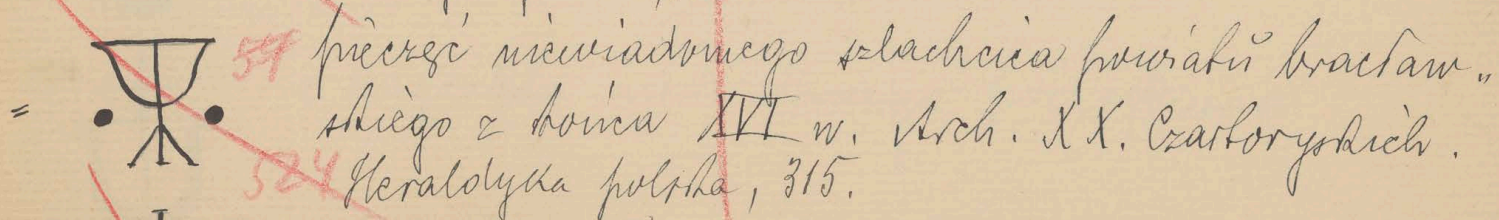 = 57 pieczęć niewiadomego szlachcica powiatu bracław„
skiego z końca XVI w. Arch. XX. Czartoryskich.
524 Heraldyka polska, 315.